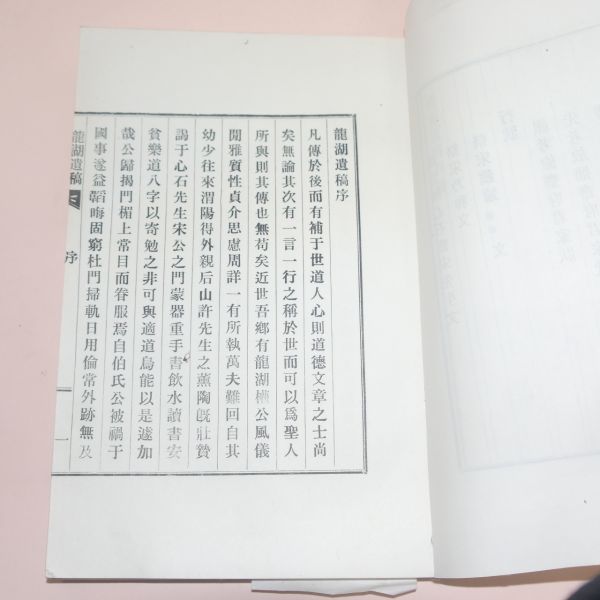 龍湖遺稿序
凡傳於後而有補于世道人心則道德文章之士尚
矣無論其次有一言一行之稱於世而可以爲聖人
所與則其傳也無苟矣近世吾鄉有龍湖 公風儀
閒雅質性貞介思慮周詳一有所執萬夫難回自其
幼少往來渭陽得外親后山許先生之薰陶旣壯贄
謁于心石先生宋公之門蒙器重手書飮水讀書安
貧樂道八字以寄勉之非可與適道烏能以是遽加
哉公歸揭門楣上常目而眷服焉自伯氏公被禍于
國事遂益韜晦固窮杜門掃軌日用倫常外跡無及
龍湖遺稿
序
一